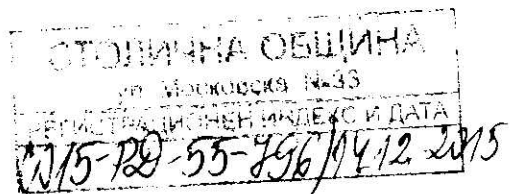 СТОЛИЧНА ОБЩИНА
ул. Московска №33
РЕГИСТРАЦИОНЕН ИНДЕКС И ДАТА
СО15-РД-55-796/14.12.2015